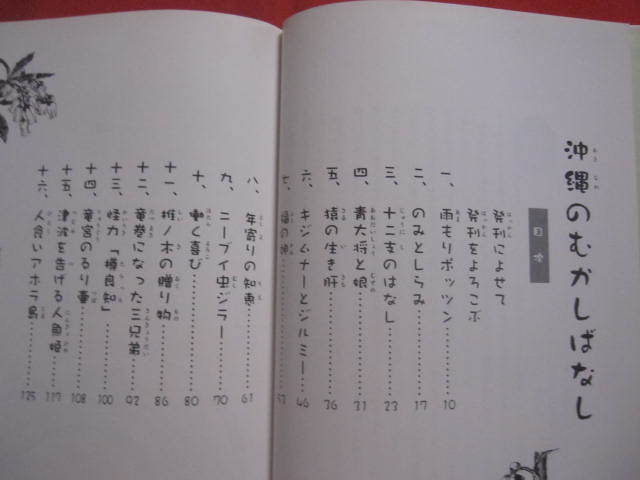 沖縄のむかしばなし
目次
発刊によせて
発刊をよろこぶ
一、雨もりポッツン………10
二、のみとしらみ………17
三、十二支のはなし………23
四、青大将と娘………31
五、猿の生き肝………36
六、キジムナーとジルミー………46
七、福の神………53
八、年寄りの知恵………61
九、ニーブイ虫ジラー………70
十、働く喜び………80
十一、椎ノ木の贈り物………86
十二、竜巻になった三兄弟………92
十三、怪力「樽良知」………100
十四、竜宮のるり壷………108
十五、津波を告げる人魚姫………117
十六、人食いアホラ鳥………125